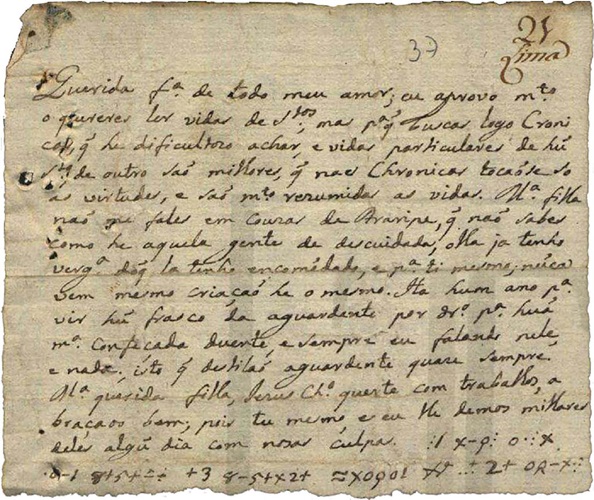 37
21
Lima
Querida f.ª de todo meu amor; eu aprovo m.to
o quereres ler vidas de S.tos, mas p.ª q̃ buscas logo Croni
cas, q̃ he dificultozo achar, e vidas particulares de hũ
S.to, de outro saõ milhores, q̃ nas Chronicas tocaõse so
as virtudes, e saõ m.to rezumidas as vidas. M.ª filla
naõ me fales em couzas de Araripe, q̃ naõ sabes
como he aquela gente de descuidada, olla ja tenho
verg.ª do q̃ la tenho encomẽdado, e p.ª ti mesmo, nũca
vem mesmo criaçaõ he o mesmo. Ha hum ano p.ª
vir hũ frasco da aguardente por dr.º p.ª huã
m.ª confeçada duente, e sempre eu falando nele
e nada; isto q̃ destilaõ aguardente quaze sempre.
M.ª querida filla, Jezus Ch.º querte com traballos, a
braçaos bem; pois tu mesmo e eu lle demos milhores
deles algũ dia com nosas culpas.